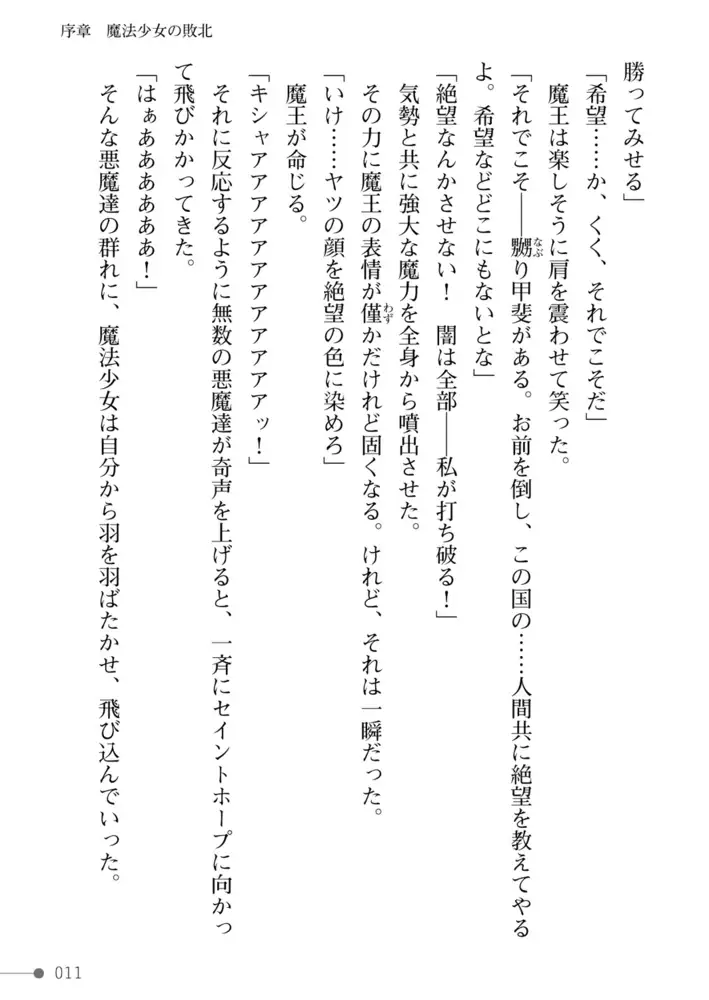 序章　魔法少女の敗北
勝ってみせる」
「希望……か、くく、それでこそだ」
魔王は楽しそうに肩を震わせて笑った。
「それでこそ――嬲り甲斐がある。お前を倒し、この国の……人間共に絶望を教えてやる
なぶ
よ。希望などどこにもないとな」
「絶望なんかさせない！　闇は全部――私が打ち破る！」
気勢と共に強大な魔力を全身から噴出させた。
その力に魔王の表情が僅かだけれど固くなる。けれど、それは一瞬だった。
わず
「いけ……ヤツの顔を絶望の色に染めろ」
魔王が命じる。
「キシャアアアアアアアアアアアッ！」
それに反応するように無数の悪魔達が奇声を上げると、一斉にセイントホープに向かっ
て飛びかかってきた。
「はぁああああああ！」
そんな悪魔達の群れに、魔法少女は自分から羽を羽ばたかせ、飛び込んでいった。
011